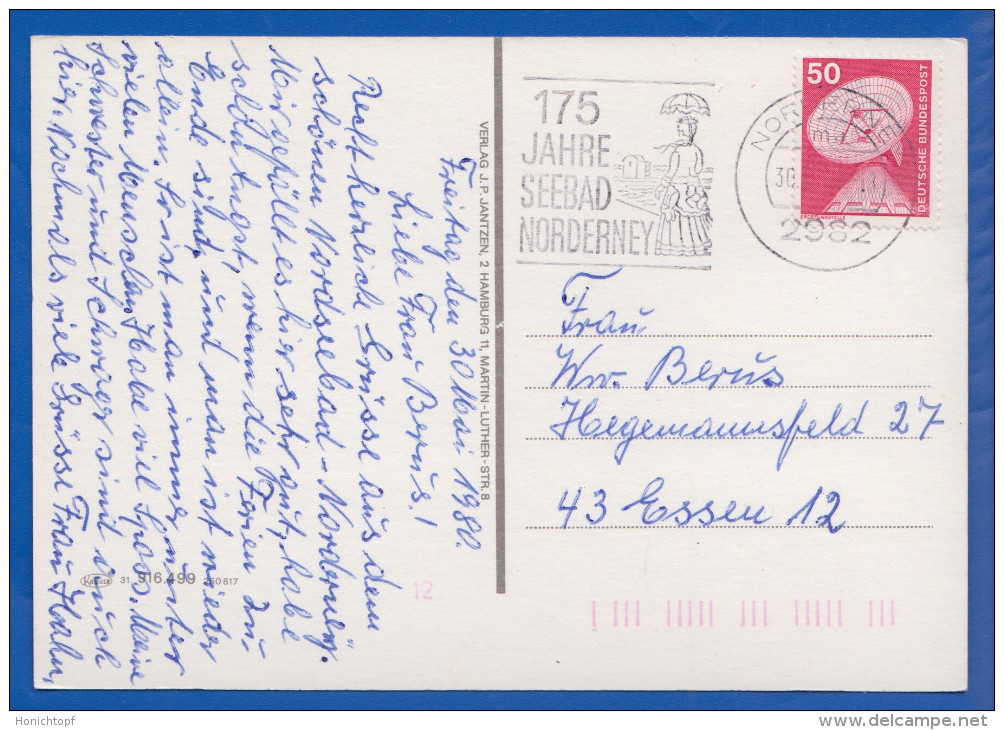 Freitag den 30 Mai 1980.
Liebe Frau Berus!
Recht herzliche Grüsse aus dem
schönen Nordseebad-Norderney.
Mir gefällt es hier sehr gut, habe
schon Angst, wenn die Ferien zu
Ende sind, und man ist wieder
allein. So ist man immer unter
vielen Menschen. Habe viel Spass. Meine
Schwester und Schwager sind auch
hier. Nochmals viele Grüsse Frau Hahn,
VERLAG J. P. JANTZEN, 2 HAMBURG 11, MARTIN-LUTHER-STR. 8
KRÜGER 31. 916.499 250 817
175
JAHRE
SEEBAD
NORDERNEY
NORDERNEY
30.
2982
50
DEUTSCHE BUNDESPOST
ERDEFUNKSTELLE
Frau
Ww. Berus
Hegemannsfeld 27
43 Essen 12
12
Honichtopf
delcampe.net